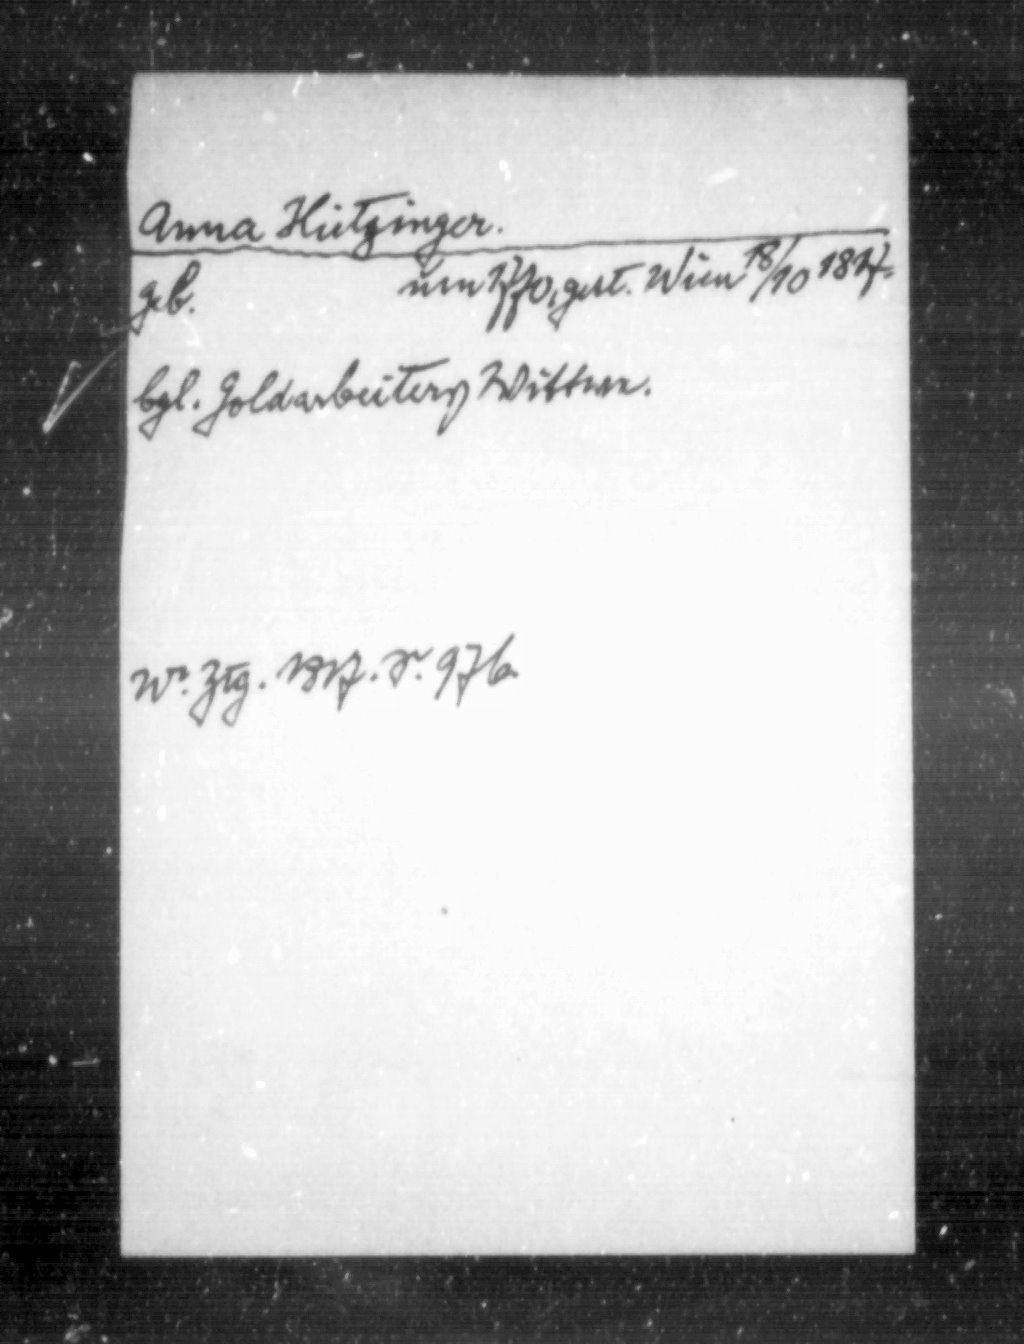 Anna Hietzinger.
geb. um 1770, gest. Wien 18/10 1817.
bgl. Goldarbeiters Wittwe.
Wr. Ztg. 1817. S. 976.